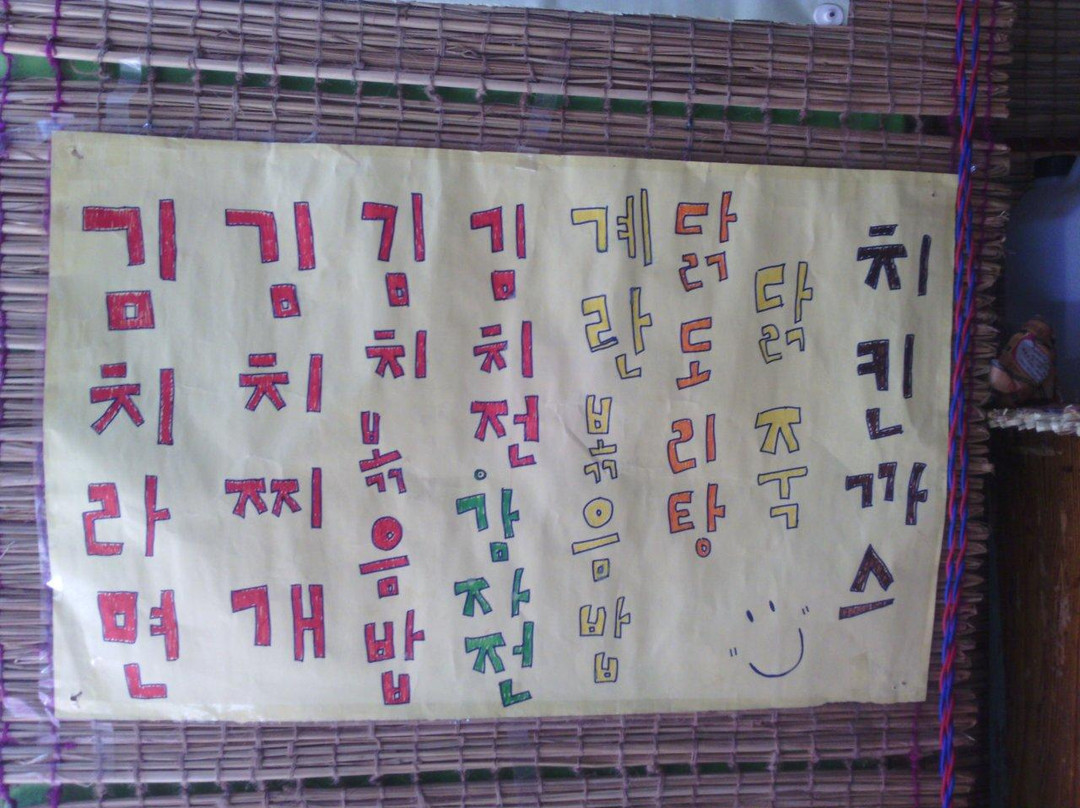 김치라면
김치찌개
김치볶음밥
김치전·감자전
계란볶음밥
닭도리탕
닭죽
치킨까스